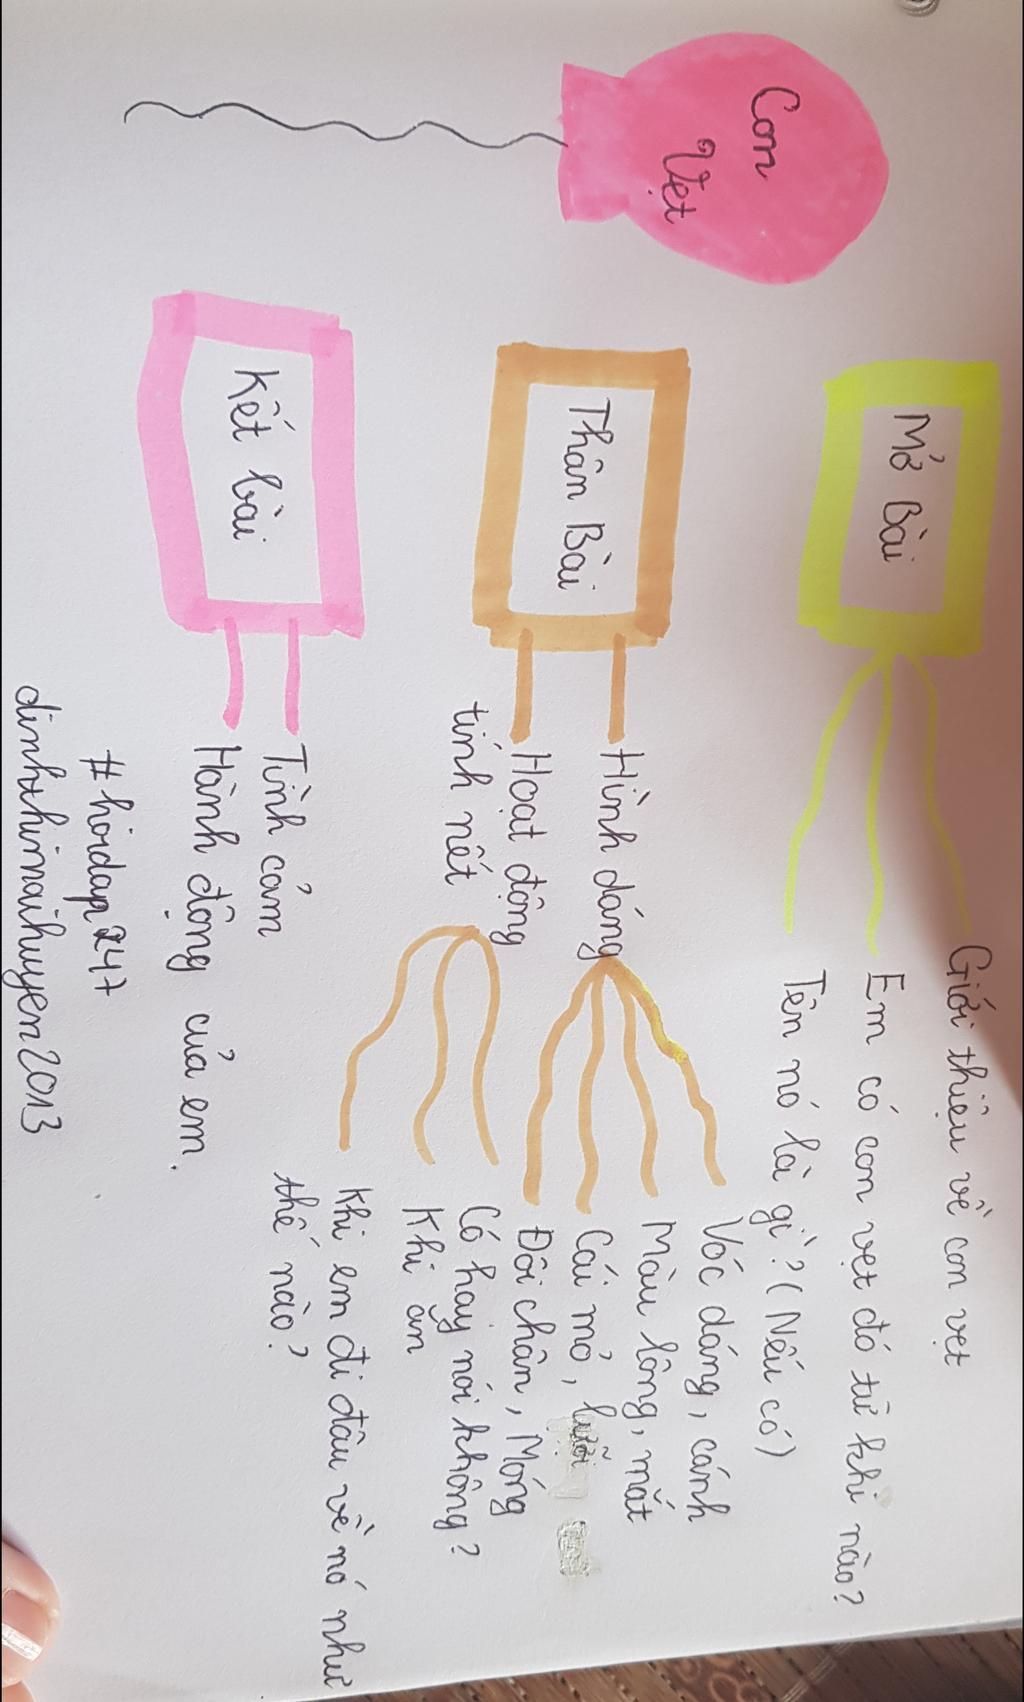 Con
Vẹt
Mở Bài
Giới thiệu về con vẹt
Em có con vẹt đó từ khi nào?
Tên nó là gì? (Nếu có)
Thân Bài
Hình dáng
Vóc dáng, cánh
Màu lông, mắt
Cái mỏ, lưỡi
Đôi chân, Móng
Hoạt động
tính nết
Có hay nói không?
Khi ăn
Khi em đi đâu về nó như
thế nào?
Kết bài
Tình cảm
Hành động của em.
#hoidap247
dinhthimaihuyen2013